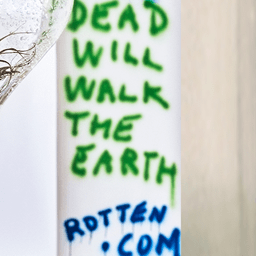 DEAD
WILL
WALK
THE
EARTH
ROTTEN
.COM